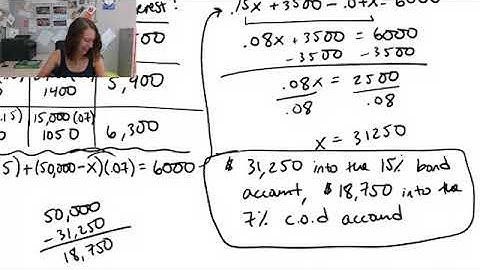 interest?
500
1400
5,400
.15)
15,000(.07)
1050
6,300
5) + (50,000 - x)(.07) = 6000
50,000
- 31,250
18,750
.15x + 3500 - .07x = 6000
.08x + 3500 = 6000
- 3500 - 3500
.08x = 2500
.08 .08
x = 31250
$ 31,250 into the 15% bond
account, $ 18,750 into the
7% c.o.d account